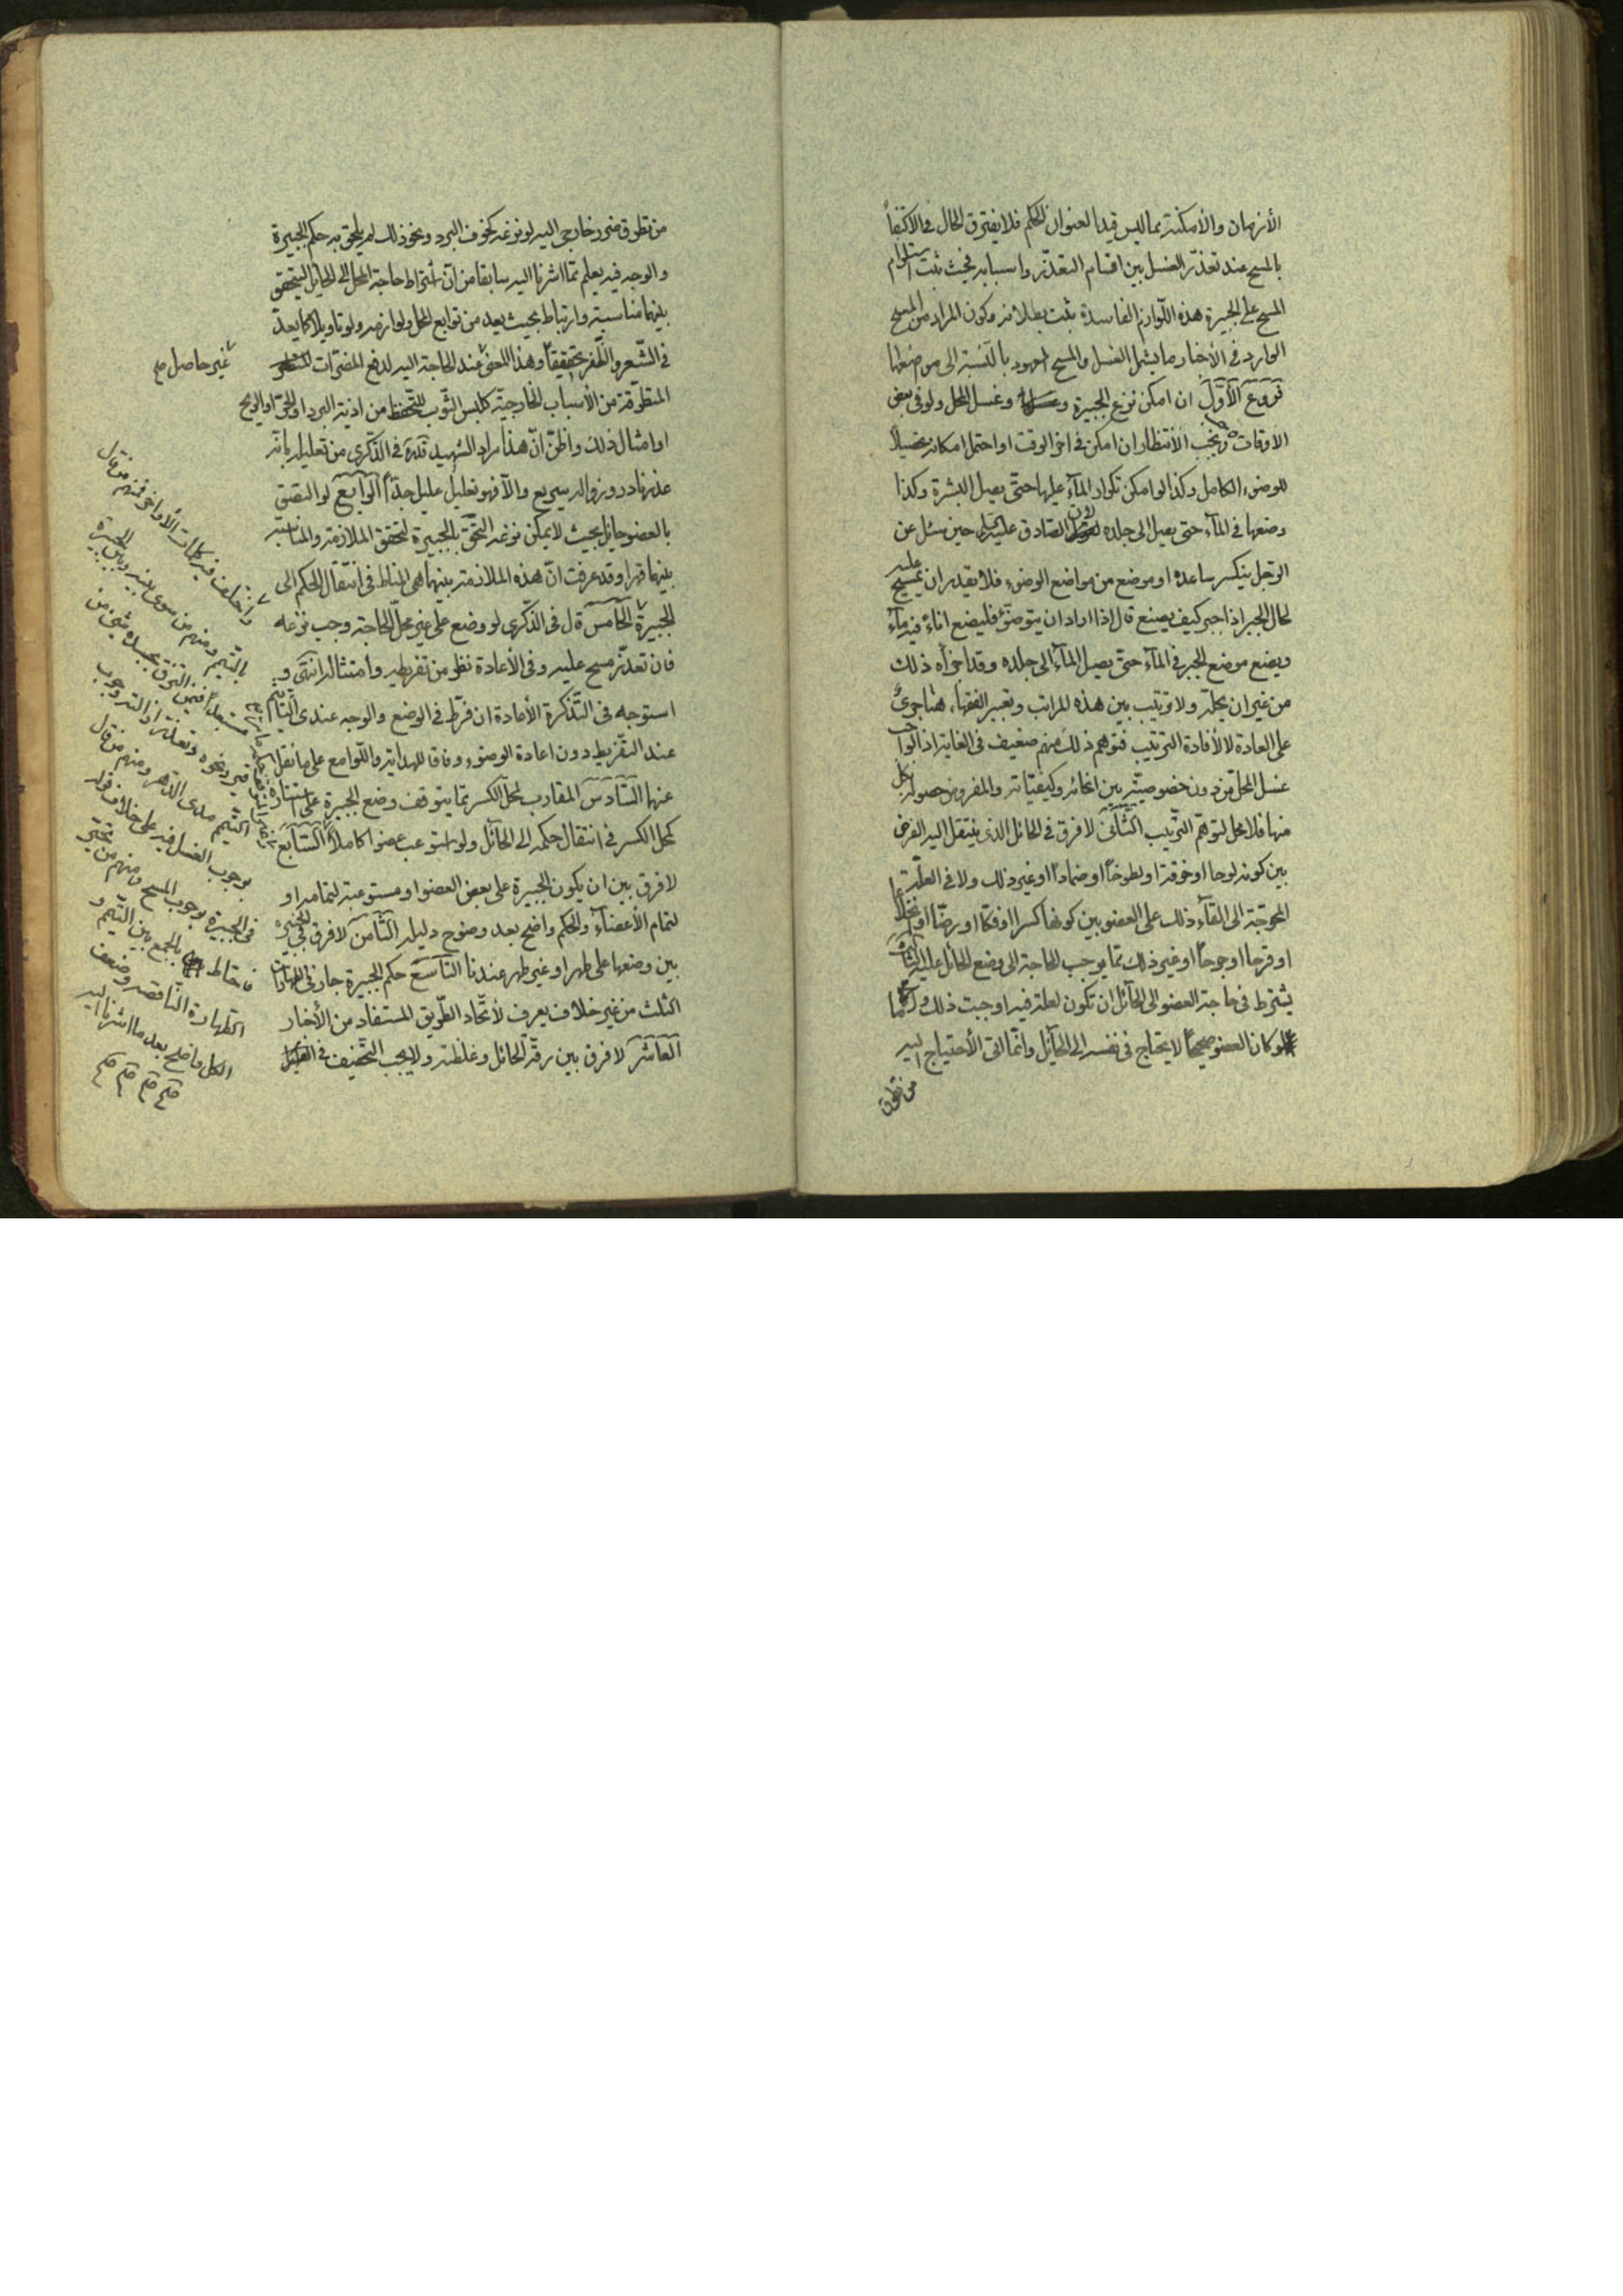 الأزمان والأمكنة مما ليس قيدا لعنوان الحكم فلا يفترق الحال فى الاكتفاء
بالمسح عند تعذّر الغسل بين اقسام التعذّر واسبابه فحيث ثبت استلزام
المسح على الجبيرة هذه اللّوازم الفاسدة ثبت بطلانه وكون المراد من المسح
الوارد فى الأخبار ما يشمل الغسل والمسح المعهود بالنّسبة الى موضعها
فروع الأوّل ان امكن نزع الجبيرة وغسل المحل ولو فى بعض
الاوقات وجب الأنتظار ان امكن فى اخر الوقت او احتمل امكانه تحصيلاً
للوضوء الكامل وكذا لو امكن تكرار المآء عليها حتّى يصل البشرة وكذا
وضعها فى المآء حتى يصل الى جلده لقول الصّادق عليه السّلم حين سئل عن
الرّجل ينكسر ساعده او موضع من مواضع الوضوء فلا يقدر ان يمسح عليه
لحال الجبر اذا جبر كيف يصنع قال اذا اراد ان يتوضّئ فليضع اناءً فيه مآء
ويضع موضع الجبر فى المآء حتّى يصل المآء الى جلده وقد اجزأه ذلك
من غير ان يحلّه ولا ترتيب بين هذه المراتب وتعبير الفقهاء هنا جرىً
على العادة لا لأفادة الترتيب فتوهم ذلك منهم ضعيف فى الغاية اذ الواجب
غسل المحل من دون خصوصيّة بين انحائه وكيفيّاته والمفروض حصوله بكل
منها فلا محل لتوهّم الترّتيب الثّانى لا فرق فى الحائل الذى ينتقل اليه الفرض
بين كونه لوحا او خرقة او لطوخاً او ضماداً او غير ذلك ولا فى العلّة
المحوجة الى القآء ذلك على العضو بين كونها كسرا او فكّا او رضّا او
او قرحا او جرحاً او غير ذلك ممّا يوجب الحاجة الى وضع الحائل عليه الثّالث
يشترط فى حاجة العضو الى الحآئل ان تكون لعلة فيه اوجبت ذلك
فلو كان العضو صحيحاً لا يحتاج فى نفسه الى الحآئل وانّما اتى الأحتياج اليه
من تطرق
من تطرق ضرر خارجى اليه لو نزعه كخوف البرد ونحو ذلك لم يلحق به حكم الجبيرة
والوجه فيه يعلم ممّا اشرنا اليه سابقا من انّ اشتراط حاجة المحل الى الحايل ليتحقق
بينهما مناسبة وارتباط بحيث يعد من توابع المحل ولوازمه ولو تاويلا كما يعدّ
فى الشّعر والظّفر تحقيقاً وهذا المعنى عند الحاجة اليه لدفع المضرّات
غير حاصل صح
المتطرّقة من الأسباب الخارجيّة كلبس الثّوب للتّحفظ من اذيّة البرد او الحرّ او الريح
او امثال ذلك واظنّ انّ هذا مراد الشّهيد قدّه فى الذّكرى من تعليله بانّه
عذر نادر وزواله سريع والّا فهو تعليل عليل جدّاً الرّابع لو التصق
بالعضو حايل بحيث لا يمكن نزعه التحق بالجبيرة لتحقق الملازمة والمناسبة
بينهما قهرا وقد عرفت انّ هذه الملازمة بينهما هى المناط فى انتقال الحكم الى
الجبيرة الخامس قال فى الذّكرى لو وضع على غير محلّ الحاجة وجب نزعه
فان تعذّر مسح عليه وفى الأعادة نظر من تفريطه وامتثاله انتهى و
استوجه فى التّذكرة الأعادة ان فرّط فى الوضع والوجه عندى التيمم
عند التفّريط دون اعادة الوضوء وفاقا للهداية واللّوامع على ما نقل
عنها السّادس المقارب لمحل الكسر ممّا يتوقف وضع الجبيرة على استتاره
كمحل الكسر فى انتقال حكمه الى الحآئل ولو استوعب عضوا كاملاً السّابع
لا فرق بين ان يكون الجبيرة على بعض العضو او مستوعبة لتمامه او
لتمام الأعضآء والحكم واضح بعد وضوح دليله الثّامن لا فرق فى الجبيرة
بين وضعها على طهر او غير طهر عندنا التّاسع حكم الجبيرة جار فى الطهارات
الثلث من غير خلاف يعرف لأتّحاد الطّريق المستفاد من الأخبار
العاشر لا فرق بين رقّة الحائل وغلظته ولا يجب التّخفيف فى
واختلفت فيه كلمات الأواخر فمنهم من قال
بالتّيمم ومنهم من سوى بينه وبين الجبيرة
التيمم مدى الدّهر ومنهم من قال
بوجوب الغسل فيه على خلاف قوله
فى الجبيرة بوجوب المسح ومنهم من تحيّر
فاحتاط بالجمع بين التّيمم و
الطّهارة النّاقصة وضعف
الكل واضح بعد ما اشرنا اليه
صح صح صح صح